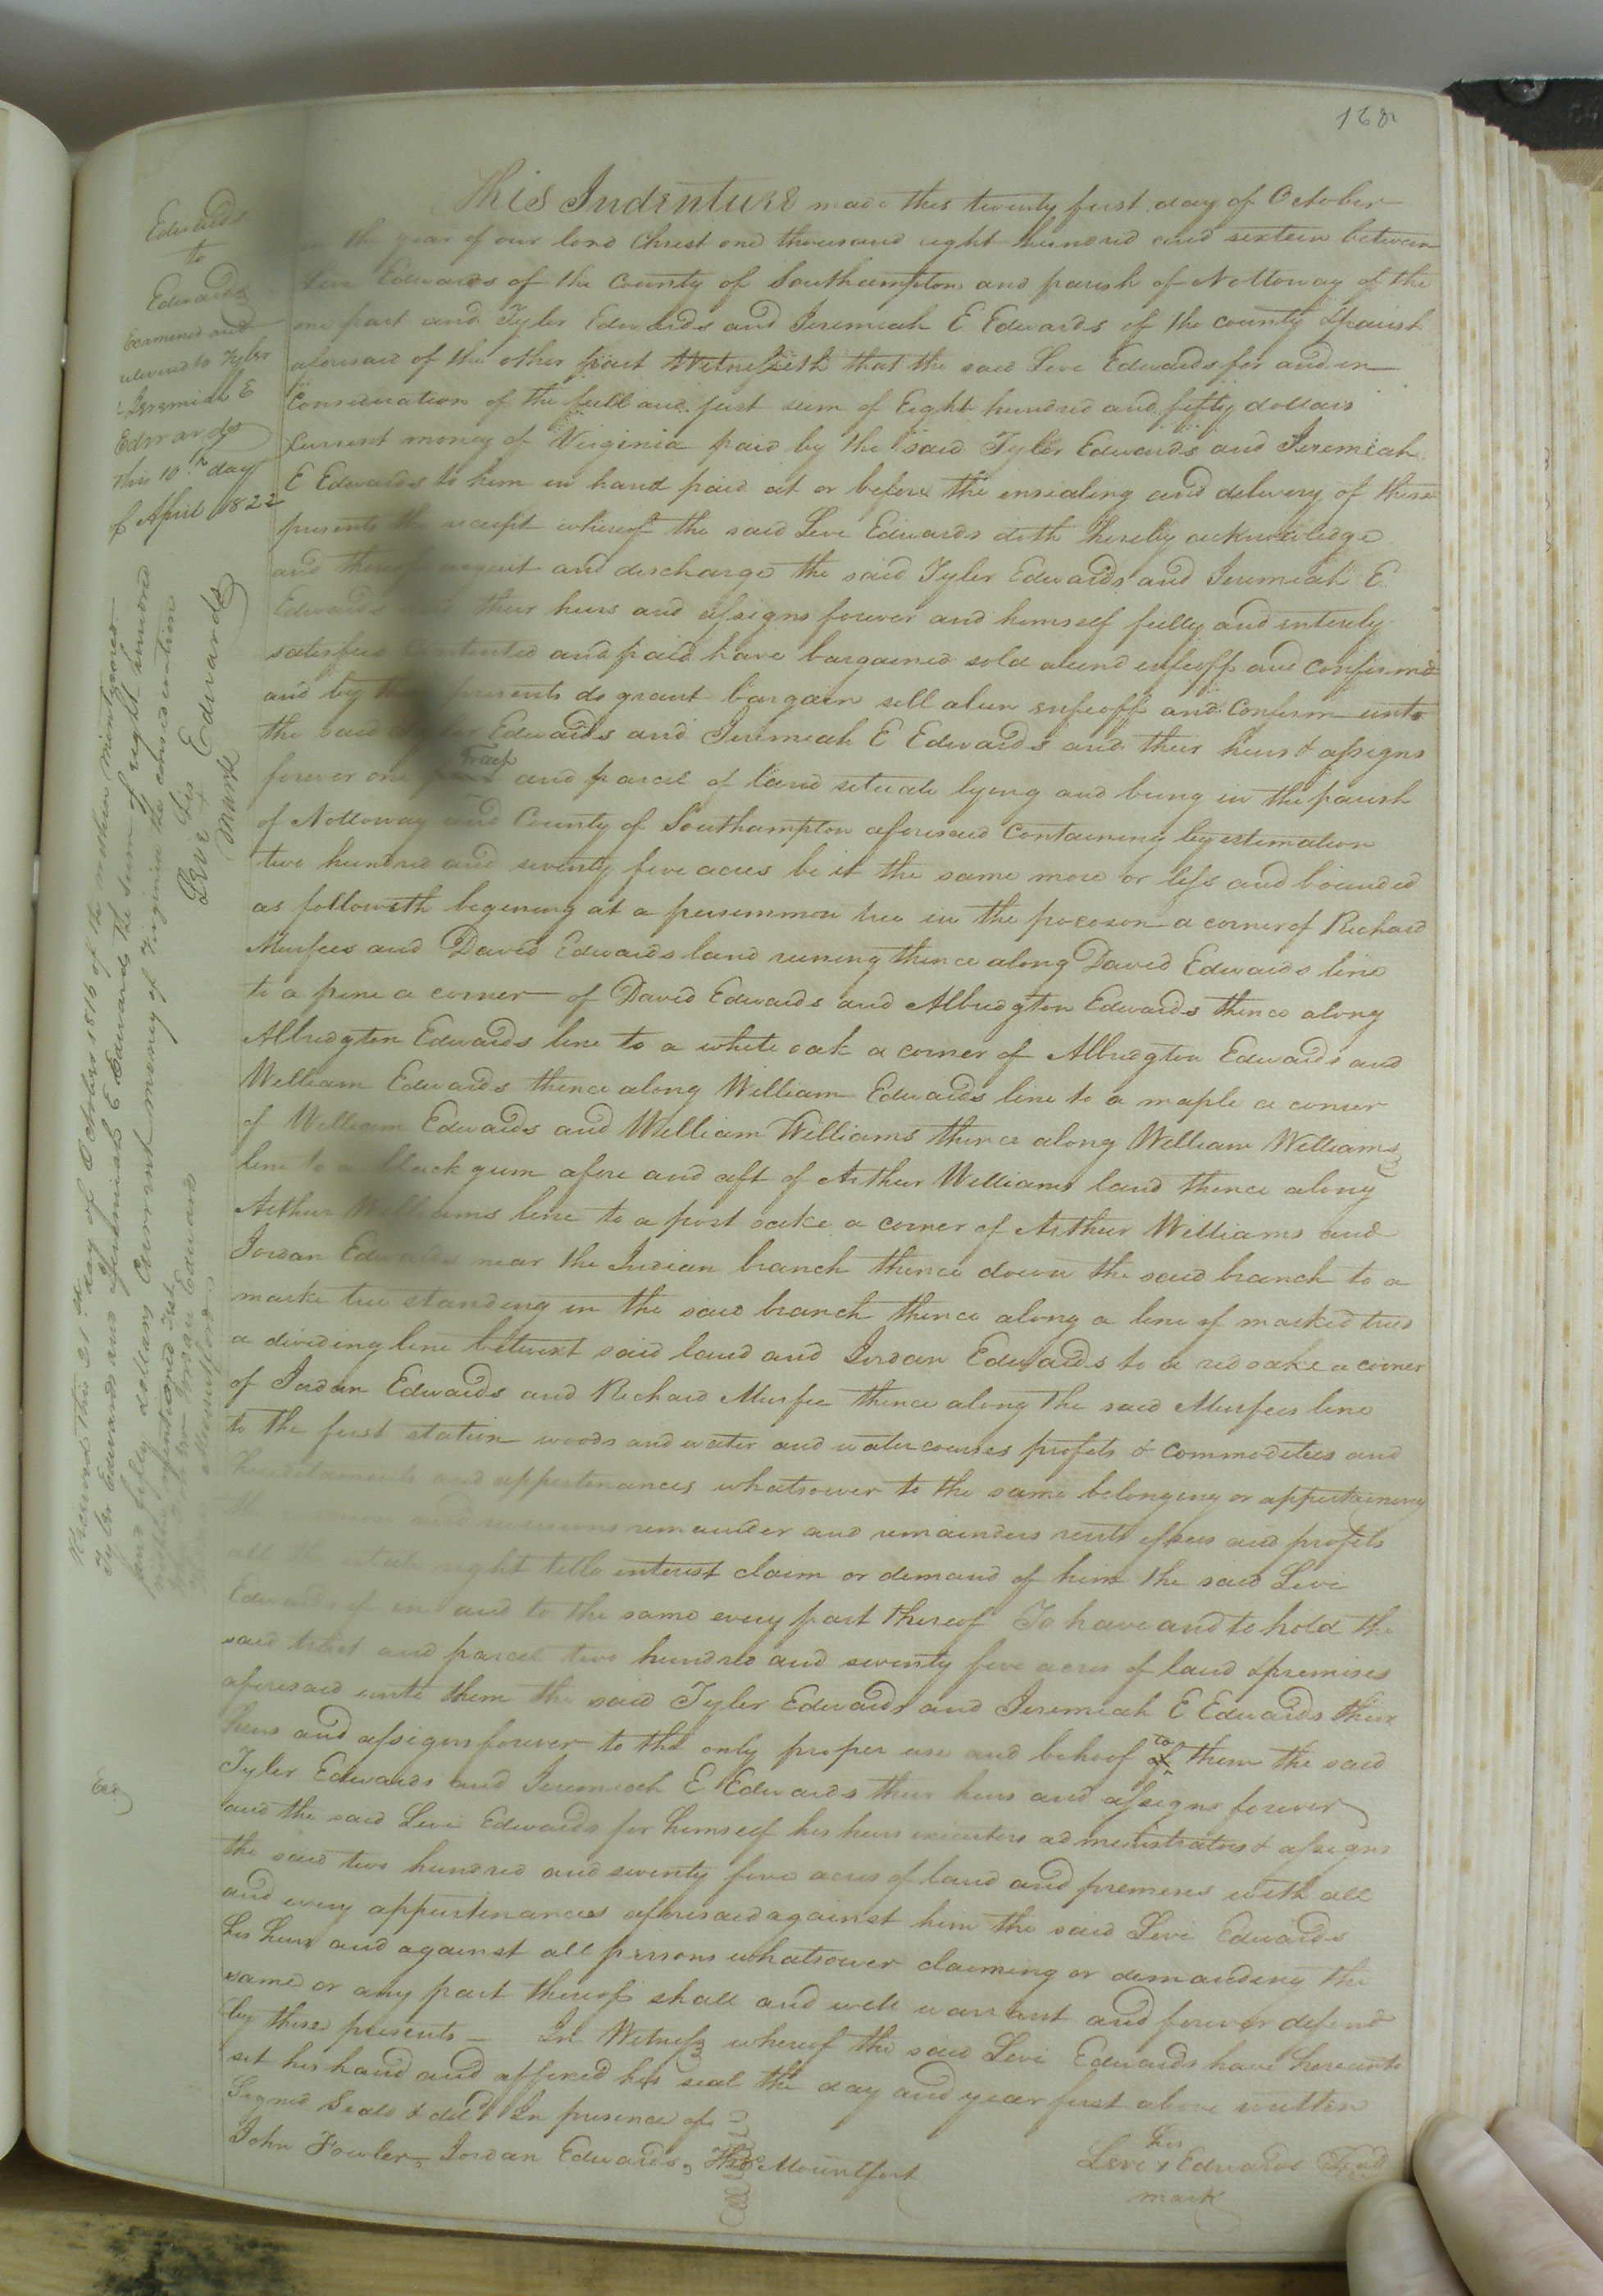 168
Edwards
to
Edwards
Examined and
delivered to Tyler
& Jeremiah E
Edwards
This 10th day
of April 1822
This Indenture made this twenty first day of October
in the year of our lord Christ one thousand eight hundred and sixteen between
Levi Edwards of the County of Southampton and parish of Nottoway of the
one part and Tyler Edwards and Jeremiah E Edwards of the county & parish
aforesaid of the other part Witnesseth that the said Levi Edwards for and in
Consideration of the full and just sum of Eight hundred and fifty dollars
Current money of Virginia paid by the said Tyler Edwards and Jeremiah
E Edwards to him in hand paid at or before the ensealing and delivery of these
presents the receipt whereof the said Levi Edwards doth hereby acknowledge
and thereof acquit and discharge the said Tyler Edwards and Jeremiah E
Edwards and their heirs and assigns forever and himself fully and entirely
satisfied Contented and paid have bargained sold aliend enfeoff and confirmd
and by these presents do grant bargain sell alien enfeoff and Confirm unto
the said Tyler Edwards and Jeremiah E Edwards and their heirs & assigns
forever one Tract and parcel of land situate lying and being in the parish
of Nottoway and County of Southampton aforesaid Containing by estimation
two hundred and seventy five acres be it the same more or less and bounded
as followeth begening at a persemmon tree in the pocoson a corner of Richard
Murfees and David Edwards land runing thence along David Edwards line
to a pine a corner of David Edwards and Albridgton Edwards thence along
Albridgton Edwards line to a white oak a corner of Albridgton Edwards and
William Edwards thence along William Edwards line to a maple a corner
of William Edwards and William Williams thence along William Williams
line to a black gum afore and aft of Arthur Williams land thence along
Arthur Williams line to a post oake a corner of Arthur Williams and
Jordan Edwards near the Indian branch thence down the said branch to a
marke tree standing in the said branch thence along a line of marked trees
a dividing line betwixt said land and Jordan Edwards to a red oake a corner
of Jordan Edwards and Richard Murfee thence along the said Murfees line
to the first station woods and water and water courses profets & commodities and
hereditaments and appurtenances whatsower to the same belonging or appertaining
and reversions remainder and remainders rents issues and profits
all the estate right title interest claim or demand of him the said Levi
Edwards of in and to the same every part thereof To have and to hold the
said tract and parcel two hundred and seventy five acres of land & premises
aforesaid unto them the said Tyler Edwards and Jeremiah E Edwards their
heirs and assigns forever to the only proper use and behoof to them the said
Tyler Edwards and Jeremiah E Edwards their heirs and assigns forever
and the said Levi Edwards for himself his heirs executors administrators & assigns
the said two hundred and seventy five acres of land and premeses with all
and every appurtenances aforesaid against him the said Levi Edwards
his heirs and against all persons whatsower claiming or demanding the
same or any part thereof shall and will warrant and forever defend
by these presents — In Witness whereof the said Levi Edwards have hereunto
set his hand and affixed his seal the day and year first above written
Signed Seald & deld In presence of
John Fowler, Jordan Edwards, Thos Mountfort
his
Levi x Edwards Seal
mark
Received this 21st day of October 1816 of the within mentioned
Tyler Edwards and Jeremiah E Edwards the sum of eight hundred
and fifty dollars Current money of Virginia the consideration
within mentioned
Jordan Edwards
Mountford
his
Levi + Edwards
mark